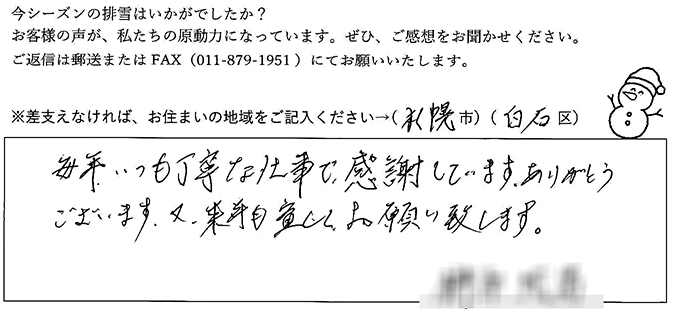 今シーズンの排雪はいかがでしたか？
お客様の声が、私たちの原動力になっています。ぜひ、ご感想をお聞かせください。
ご返信は郵送またはFAX（011-879-1951）にてお願いいたします。
※差支えなければ、お住まいの地域をご記入ください→（札幌市）（白石区）
毎年、いつも丁寧な仕事で、感謝しています。ありがとう
ございます。又、来年も宜しく、お願い致します。